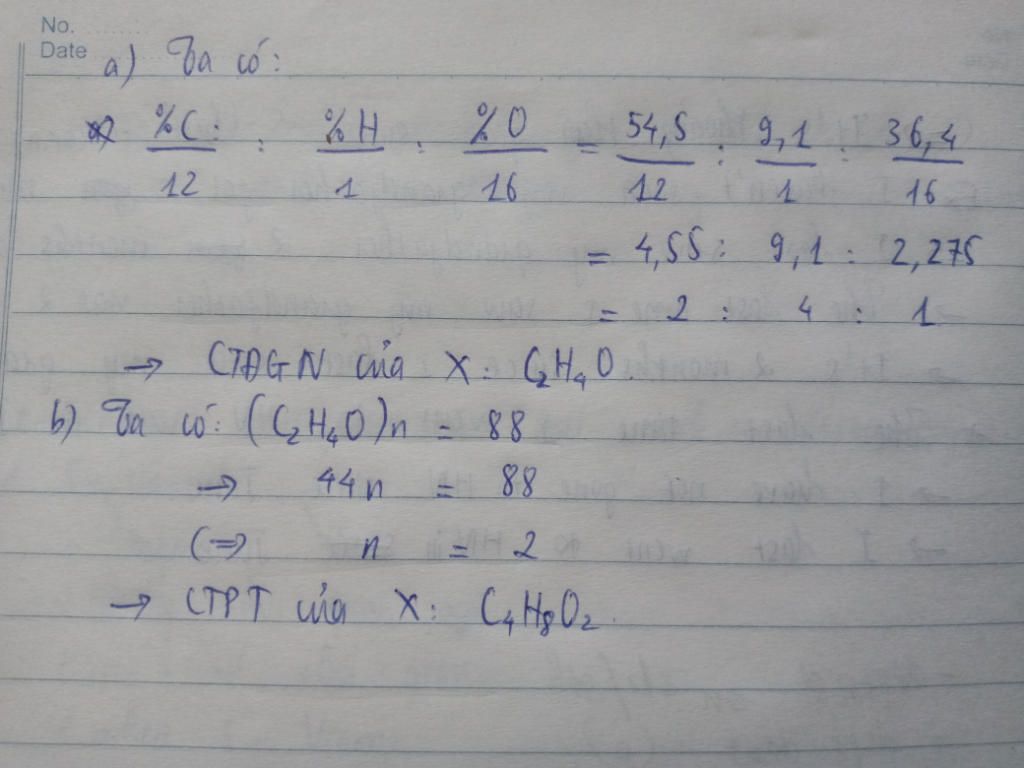 No. ........
Date
a) Ta có:
%C : / 12 : %H / 1 : %O / 16 = 54,5 / 12 : 9,1 / 1 : 36,4 / 16
= 4,55 : 9,1 : 2,275
= 2 : 4 : 1
→ CTĐGN của X: C₂H₄O.
b) Ta có: (C₂H₄O)n = 88
→ 44n = 88
(⇒ n = 2
→ CTPT của X: C₄H₈O₂.